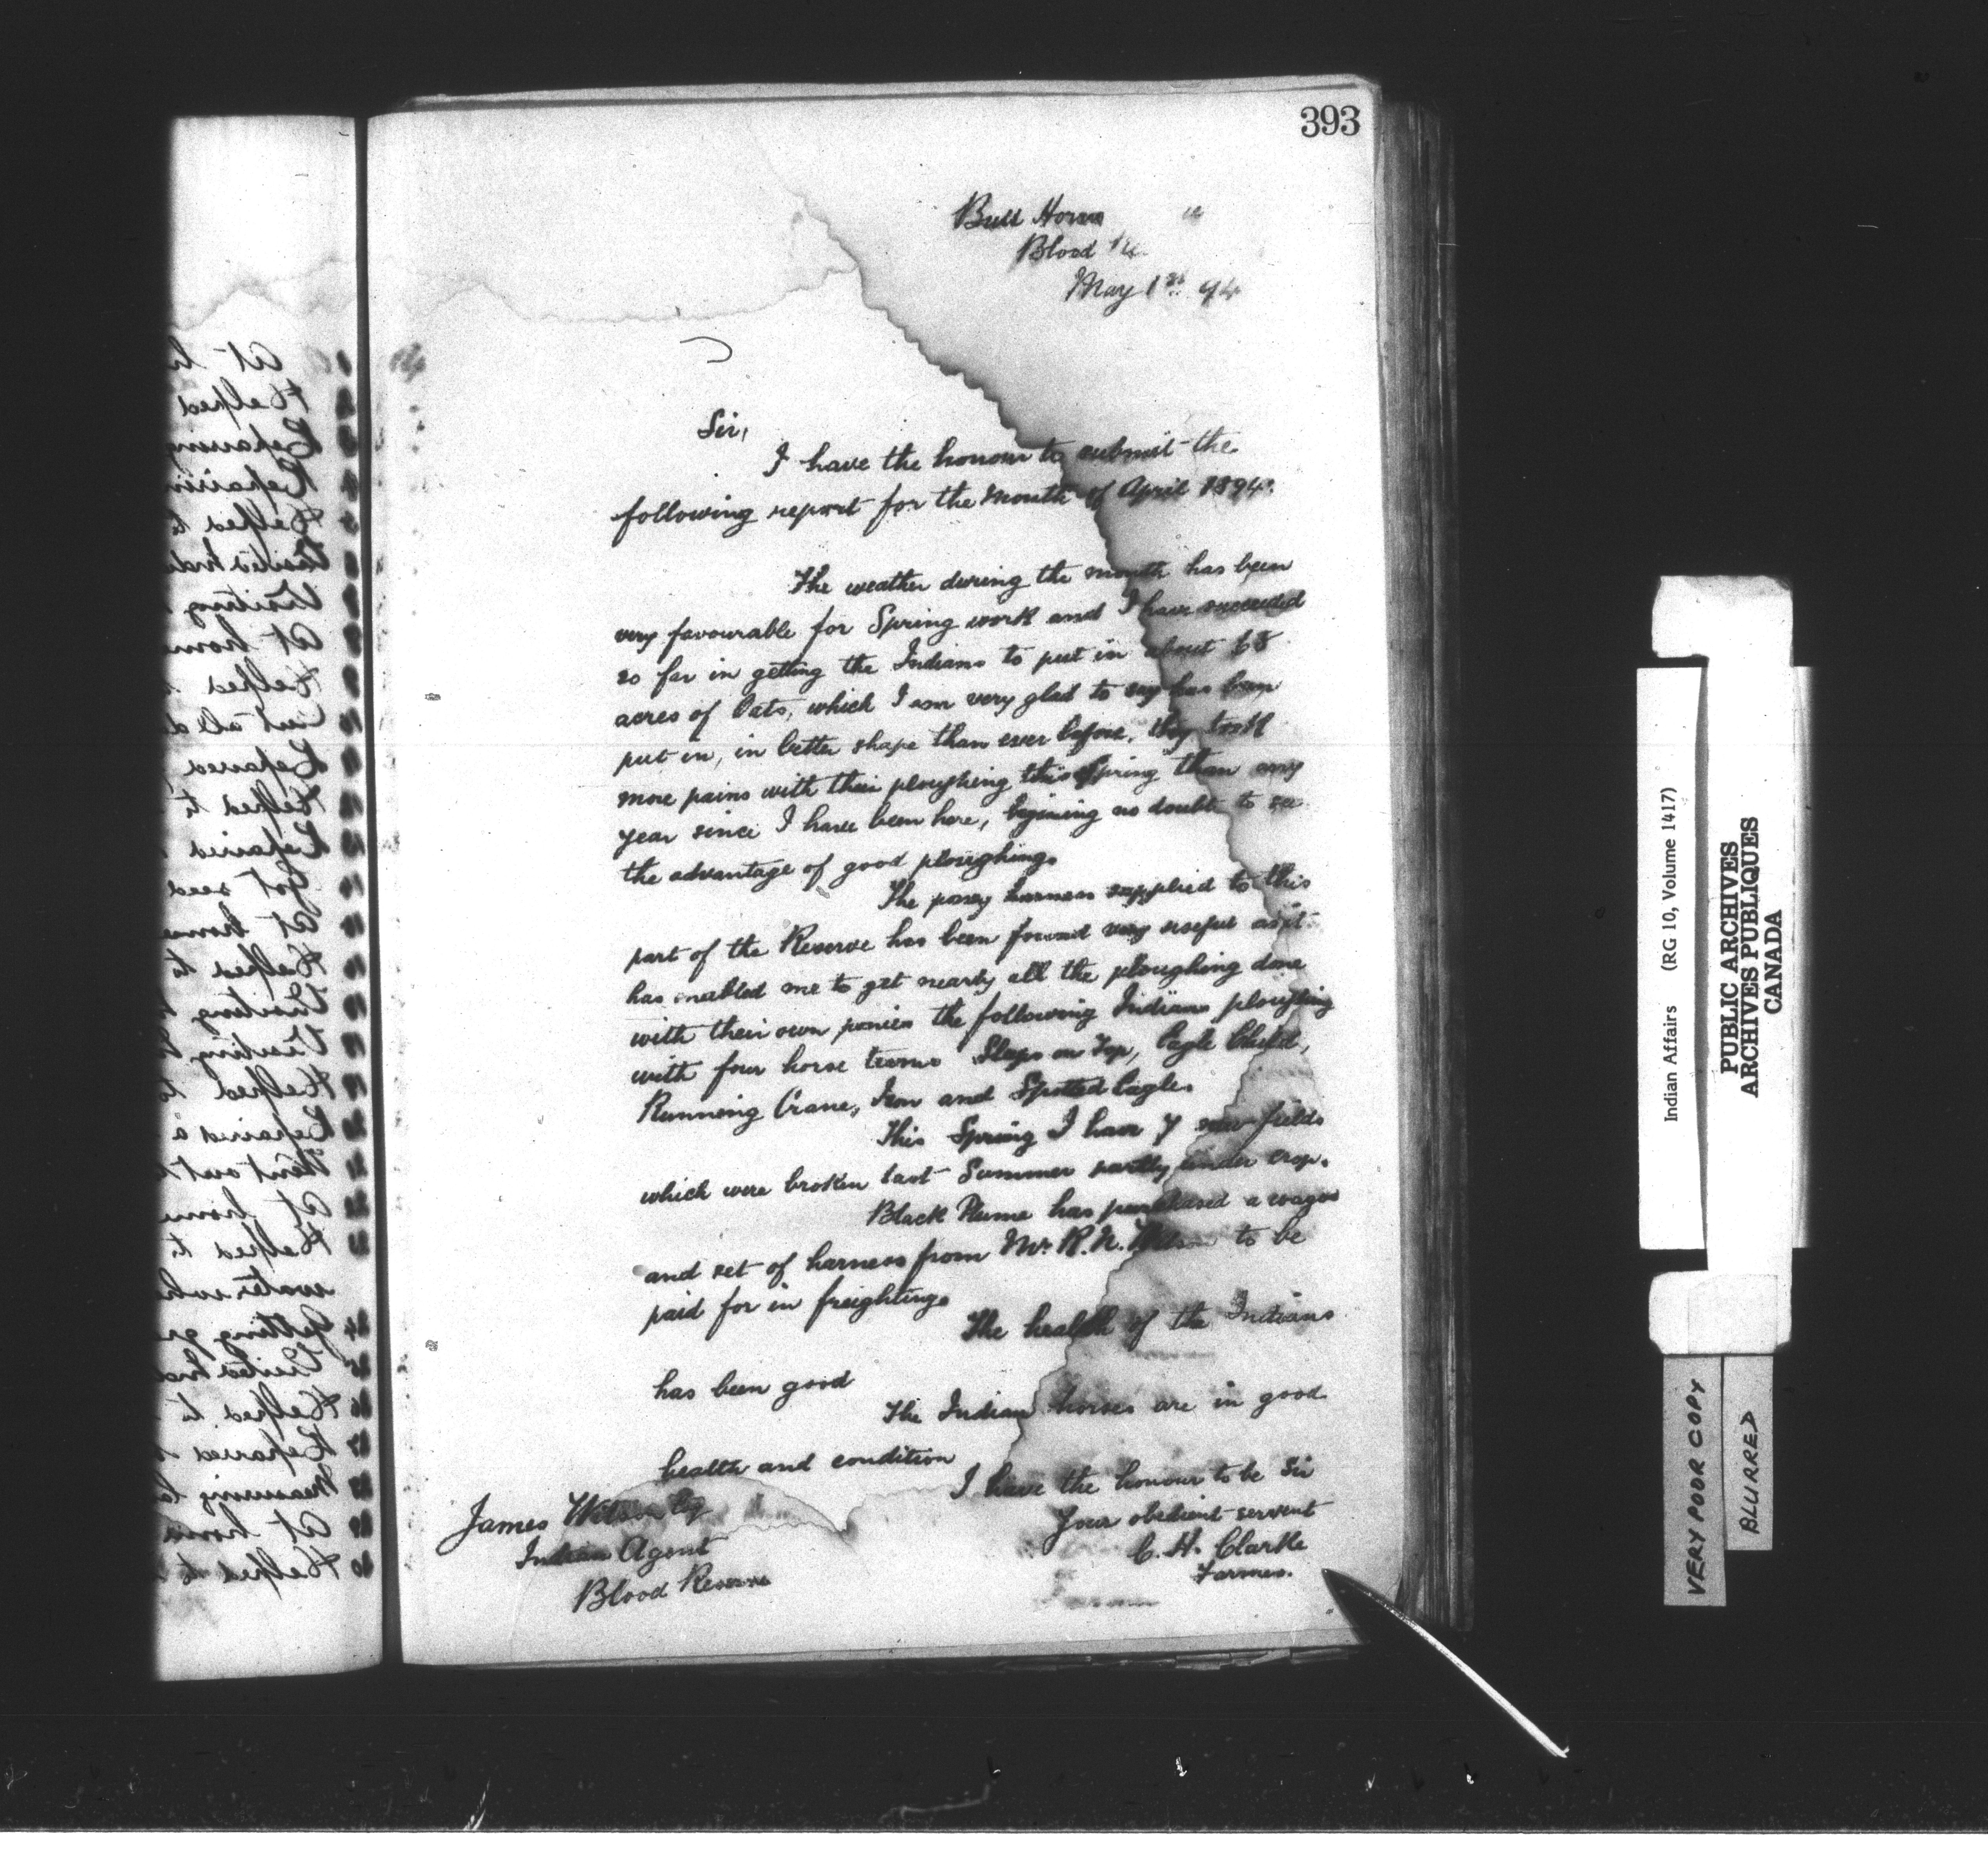 393
Bull Horn
Blood
May 1st 94
Sir,
I have the honour to submit the
following report for the Month of April 1894.
The weather during the month has been
very favourable for Spring work and I have succeeded
so far in getting the Indians to put in about 68
acres of Oats, which I am very glad to say has been
put in, in better shape than ever before, they took
more pains with their ploughing this Spring than any
year since I have been here, begining no doubt to see
the advantage of good ploughing.
The poney harness supplied to this
part of the Reserve has been found very useful as it
has enabled me to get nearly all the ploughing done
with their own ponies the following Indians ploughing
with four horse teams Sleeps on Top, Eagle Child,
Running Crane, Iron and Spotted Eagle.
This Spring I have 7 new fields
which were broken last Summer partly under crop.
Black Plume has purchased a wagon
and set of harness from Mr. R. N. Wilson to be
paid for in freighting.
The health of the Indians
has been good
The Indian horses are in good
health and condition
I have the honour to be Sir
Your obedient servant
C. H. Clarke
Farmer.
James Wilson Esq
Indian Agent
Blood Reserve
Indian Affairs (RG 10, Volume 1417)
PUBLIC ARCHIVES
ARCHIVES PUBLIQUES
CANADA
VERY POOR COPY
BLURRED